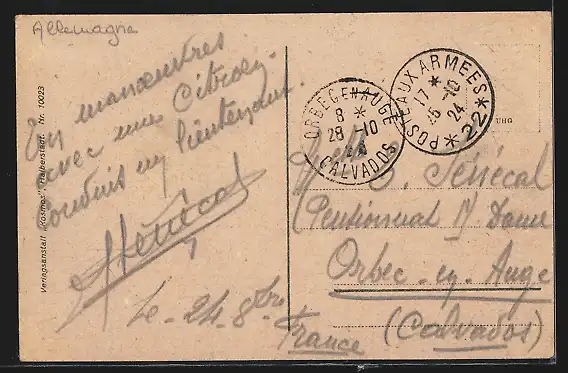 Allemagne
En manœuvres
avec une Citroën.
conduis un lieutenant.
HSénécal
Le 24 8bre
Verlagsanstalt „Kosmos", Halberstadt. Nr. 10023
ORBEC EN AUGE
8 *
28 -10
24
CALVADOS
POSTE AUX ARMEES
17 *
25 -10
24
* 22 *
UHG
S. Sénécal
(Pensionnat N. Dame
Orbec-en-Auge
(Calvados)
France